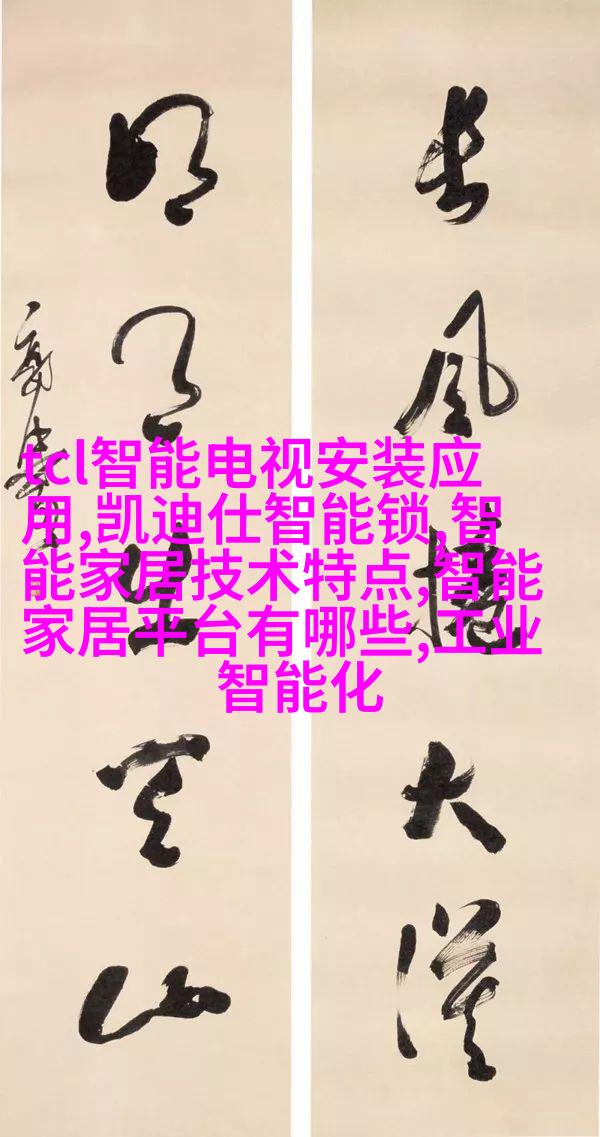 长风大漠
明月天山
tcl智能电视安装应
用,凯迪仕智能锁,智
能家居技术特点,智能
家居平台有哪些,工业
智能化